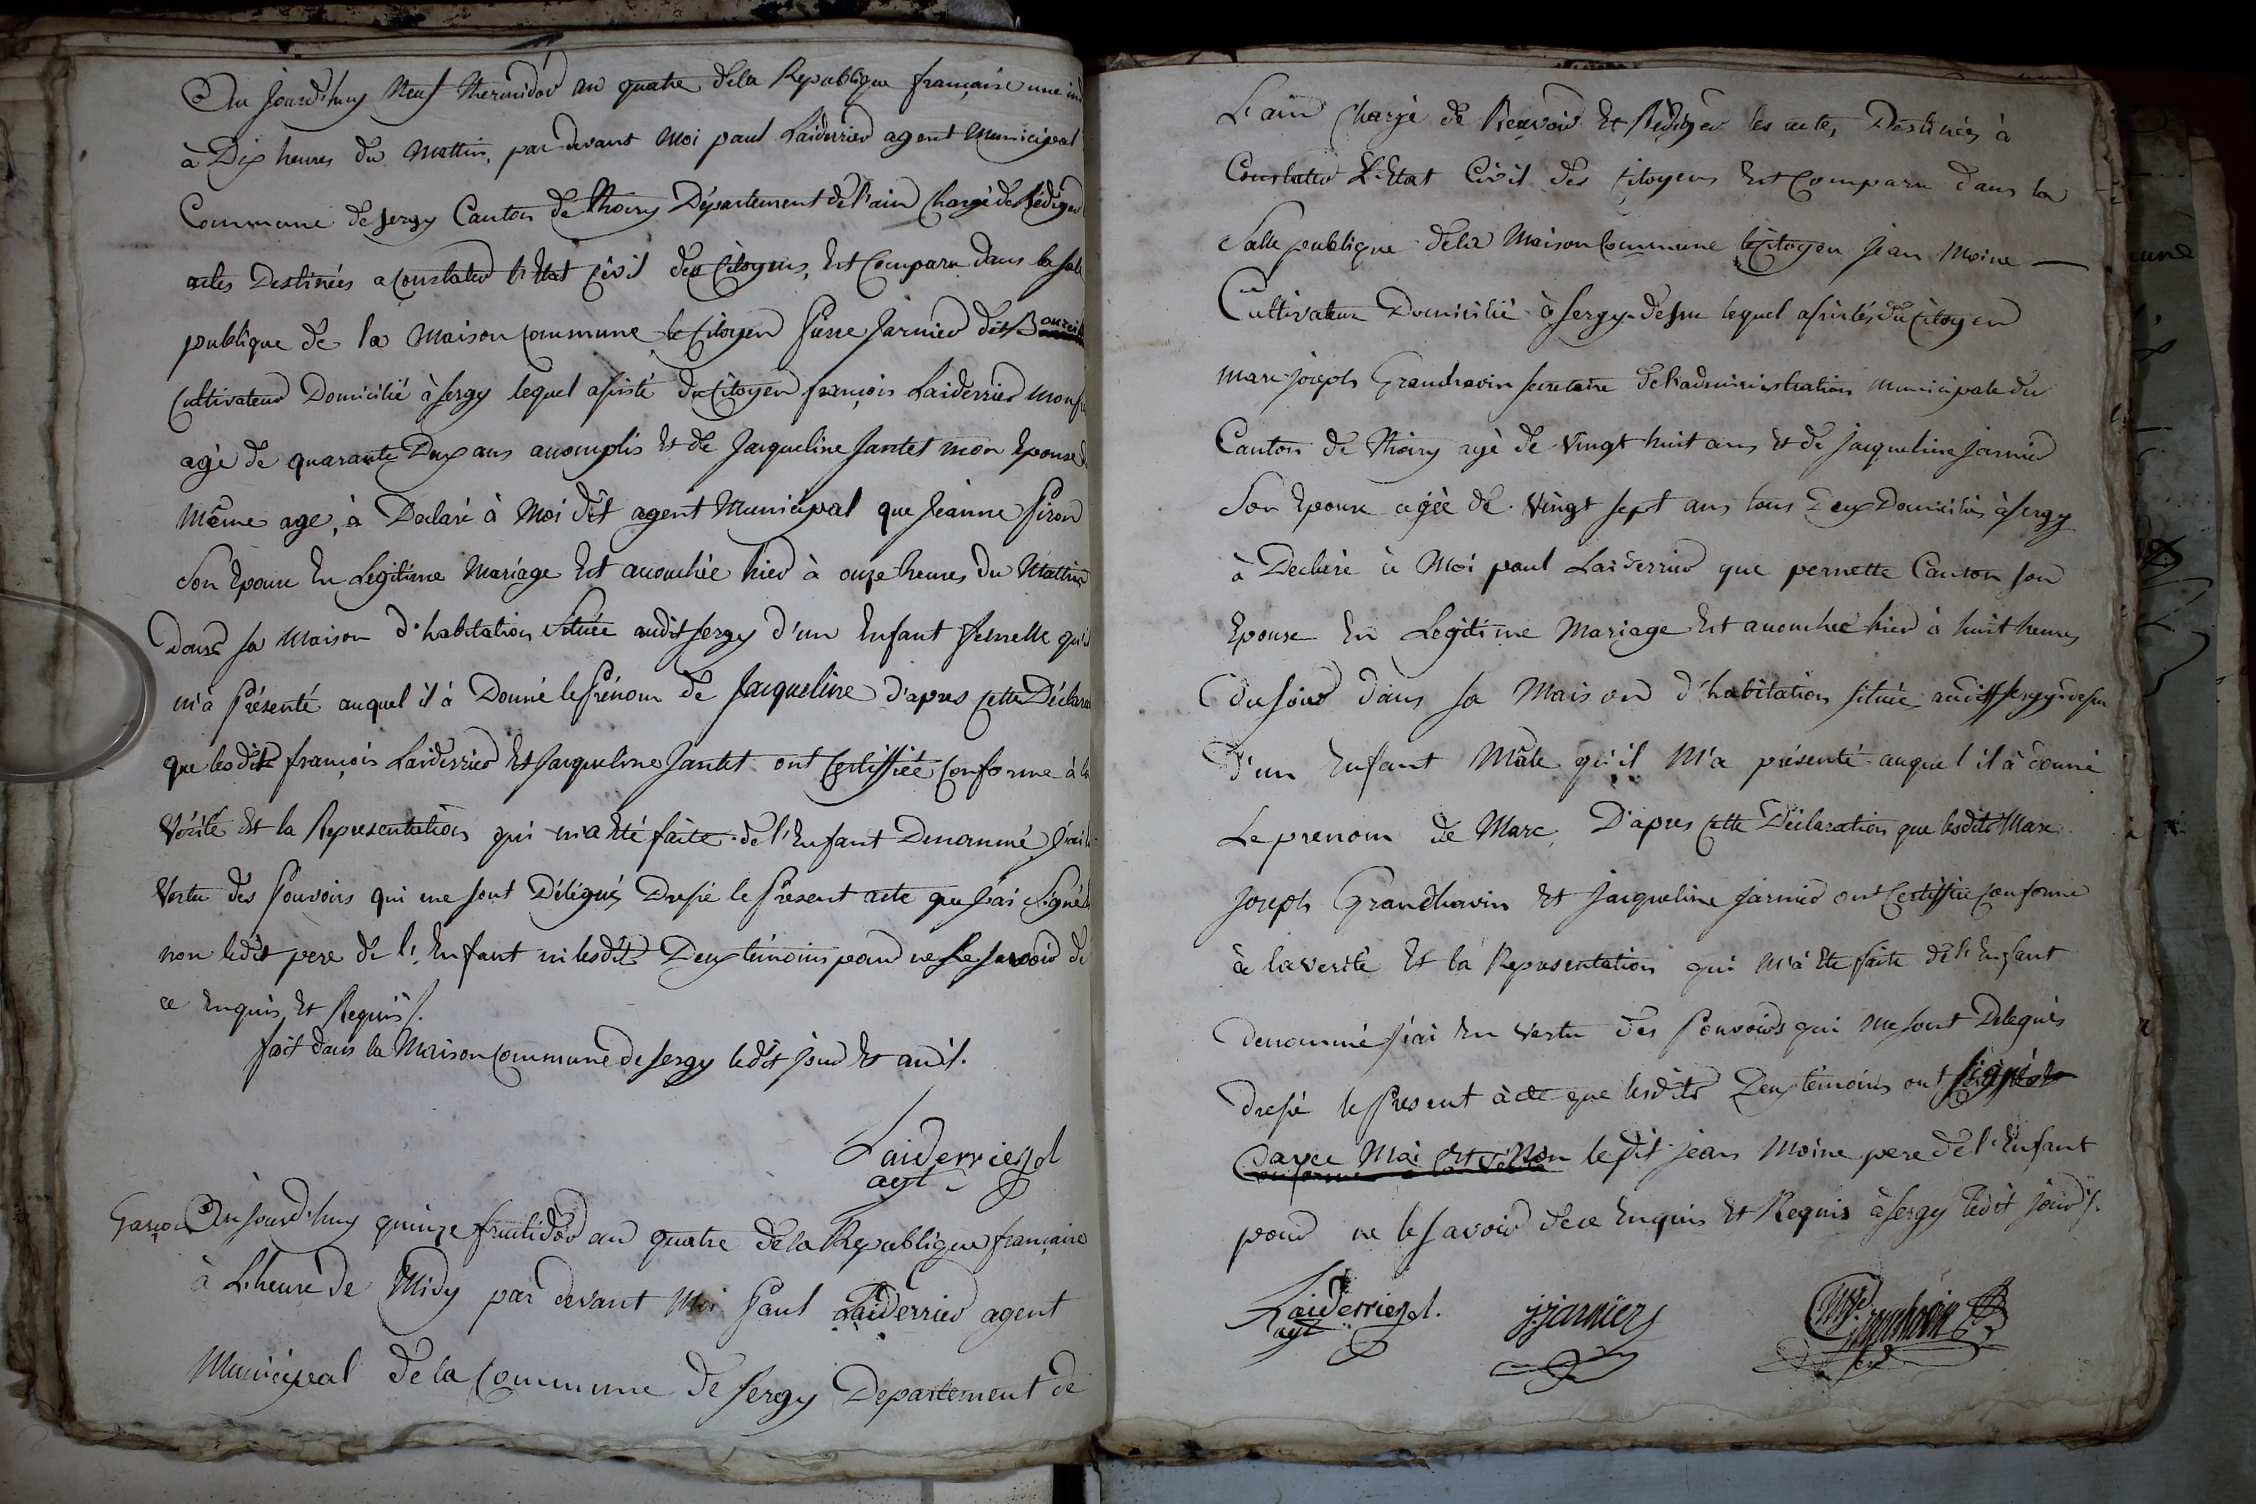 Au jourd'huy Neuf thermidor an quatre dela Republique française une ind
à Dix heures du Mattin, par devant Moi paul Laiderrier agent Municipal
Commune de Sergy Canton de Thoiry Département de l'ain Chargé de Rédiger
actes Destinées a Constater l'Etat Civil des Citoyens, Est Comparu dans la sale
publique de la Maison Commune le Citoyen Pierre Jarnier dit
Cultivateur Domicilié à Sergy lequel assisté du Citoyen françois Laiderrier mon
agé de quarante Deux ans accomplis Et de Jacqueline Jantet mon Epouse d
Même age, à Declaré à Moi dit agent Municipal que Jeanne Piron
Son Epouse En Legitime Mariage Est accouchée hier à onze heures du Mattin
Dans sa Maison d'habitation Située audit Sergy d'un Enfant femelle qu'il
m'à Présenté auquel il à Donné le Prénom de Jacqueline d'apres cette Déclara
que lesdits françois Laiderrier Et Jacqueline Jantet ont Certiffiée Conforme à la
Vérité Et la Representation qui m'a Eté faite de l'Enfant Denommé J'ai
Vertu des Pouvoirs qui me sont Délégués Dressé le Présent acte que J'ai Signé
non ledit pere de l'Enfant ni lesdits Deux témoins pour ne le savoir de
ce Enquis Et Requis/.
fait dans la Maison Commune de Sergy ledit jour Et an/.
Laiderrier pl
agt
Garçon Au jourd'huy quinze fructidor an quatre dela Republique française
à L'heure de Midy par devant Moi Paul Laiderrier agent
Municipal dela Commune de Sergy Departement de
L'ain Chargé de Recevoir Et Rédiger les actes Destinées à
Constater L'Etat Civil des Citoyens Est Comparu dans la
Salle publique dela Maison Commune le Citoyen Jean Moine —
Cultivateur Domicilié à Sergy dessu lequel assistés du Citoyen
Marc joseph Grandhavin Secretaire de l'administration Municipale du
Canton de Thoiry agé de Vingt huit ans Et de Jacqueline Jarnier
Son Epouse agée de Vingt sept ans tous Deux Domiciliés à Sergy
à Declaré à Moi paul Laiderrier que pernette Canton son
Epouse En Legitime Mariage Est accouchée hier à huit heures
du soir dans sa Maison d'habitation située audit Sergy dessu
D'un Enfant Mâle qu'il M'a présenté auquel il à donné
Le prenom de Marc, D'apres cette Déclaration que lesdits Marc
joseph Grandhavin Et Jacqueline Jarnier ont Certiffiée Conforme
à la verité Et la Representation qui M'a Eté faite de l'Enfant
denommé J'ai En Vertu des Pouvoirs qui me sont Delegués
dressé le Present acte que lesdits Deux témoins ont signés
avec Moi Et Non ledit jean Moine pere de l'Enfant
pour ne le savoir dece Enquis Et Requis à Sergy ledit jour/.
Laiderrier pl.
agt
j. jarnier